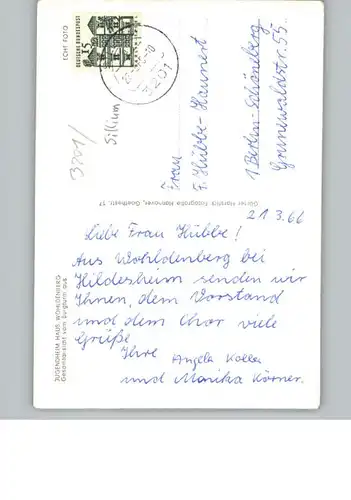 ECHT FOTO
15
DEUTSCHE BUNDESPOST
3201
3201/
Sillium
Frau
F. Hübbe-Haunert
1 Berlin-Schöneberg
Grunewaldstr. 55
Hannover, Goethestr. 37
21 3.66
Liebe Frau Hübbe!
Aus Wohldenberg bei
Hildesheim senden wir
Ihnen, dem Vorstand
und dem Chor viele
Grüße
Ihre Angela Koller
und Marika Körner.
JUGENDHEIM HAUS WOHLDENBERG
Gesamtansicht vom Burgturm aus